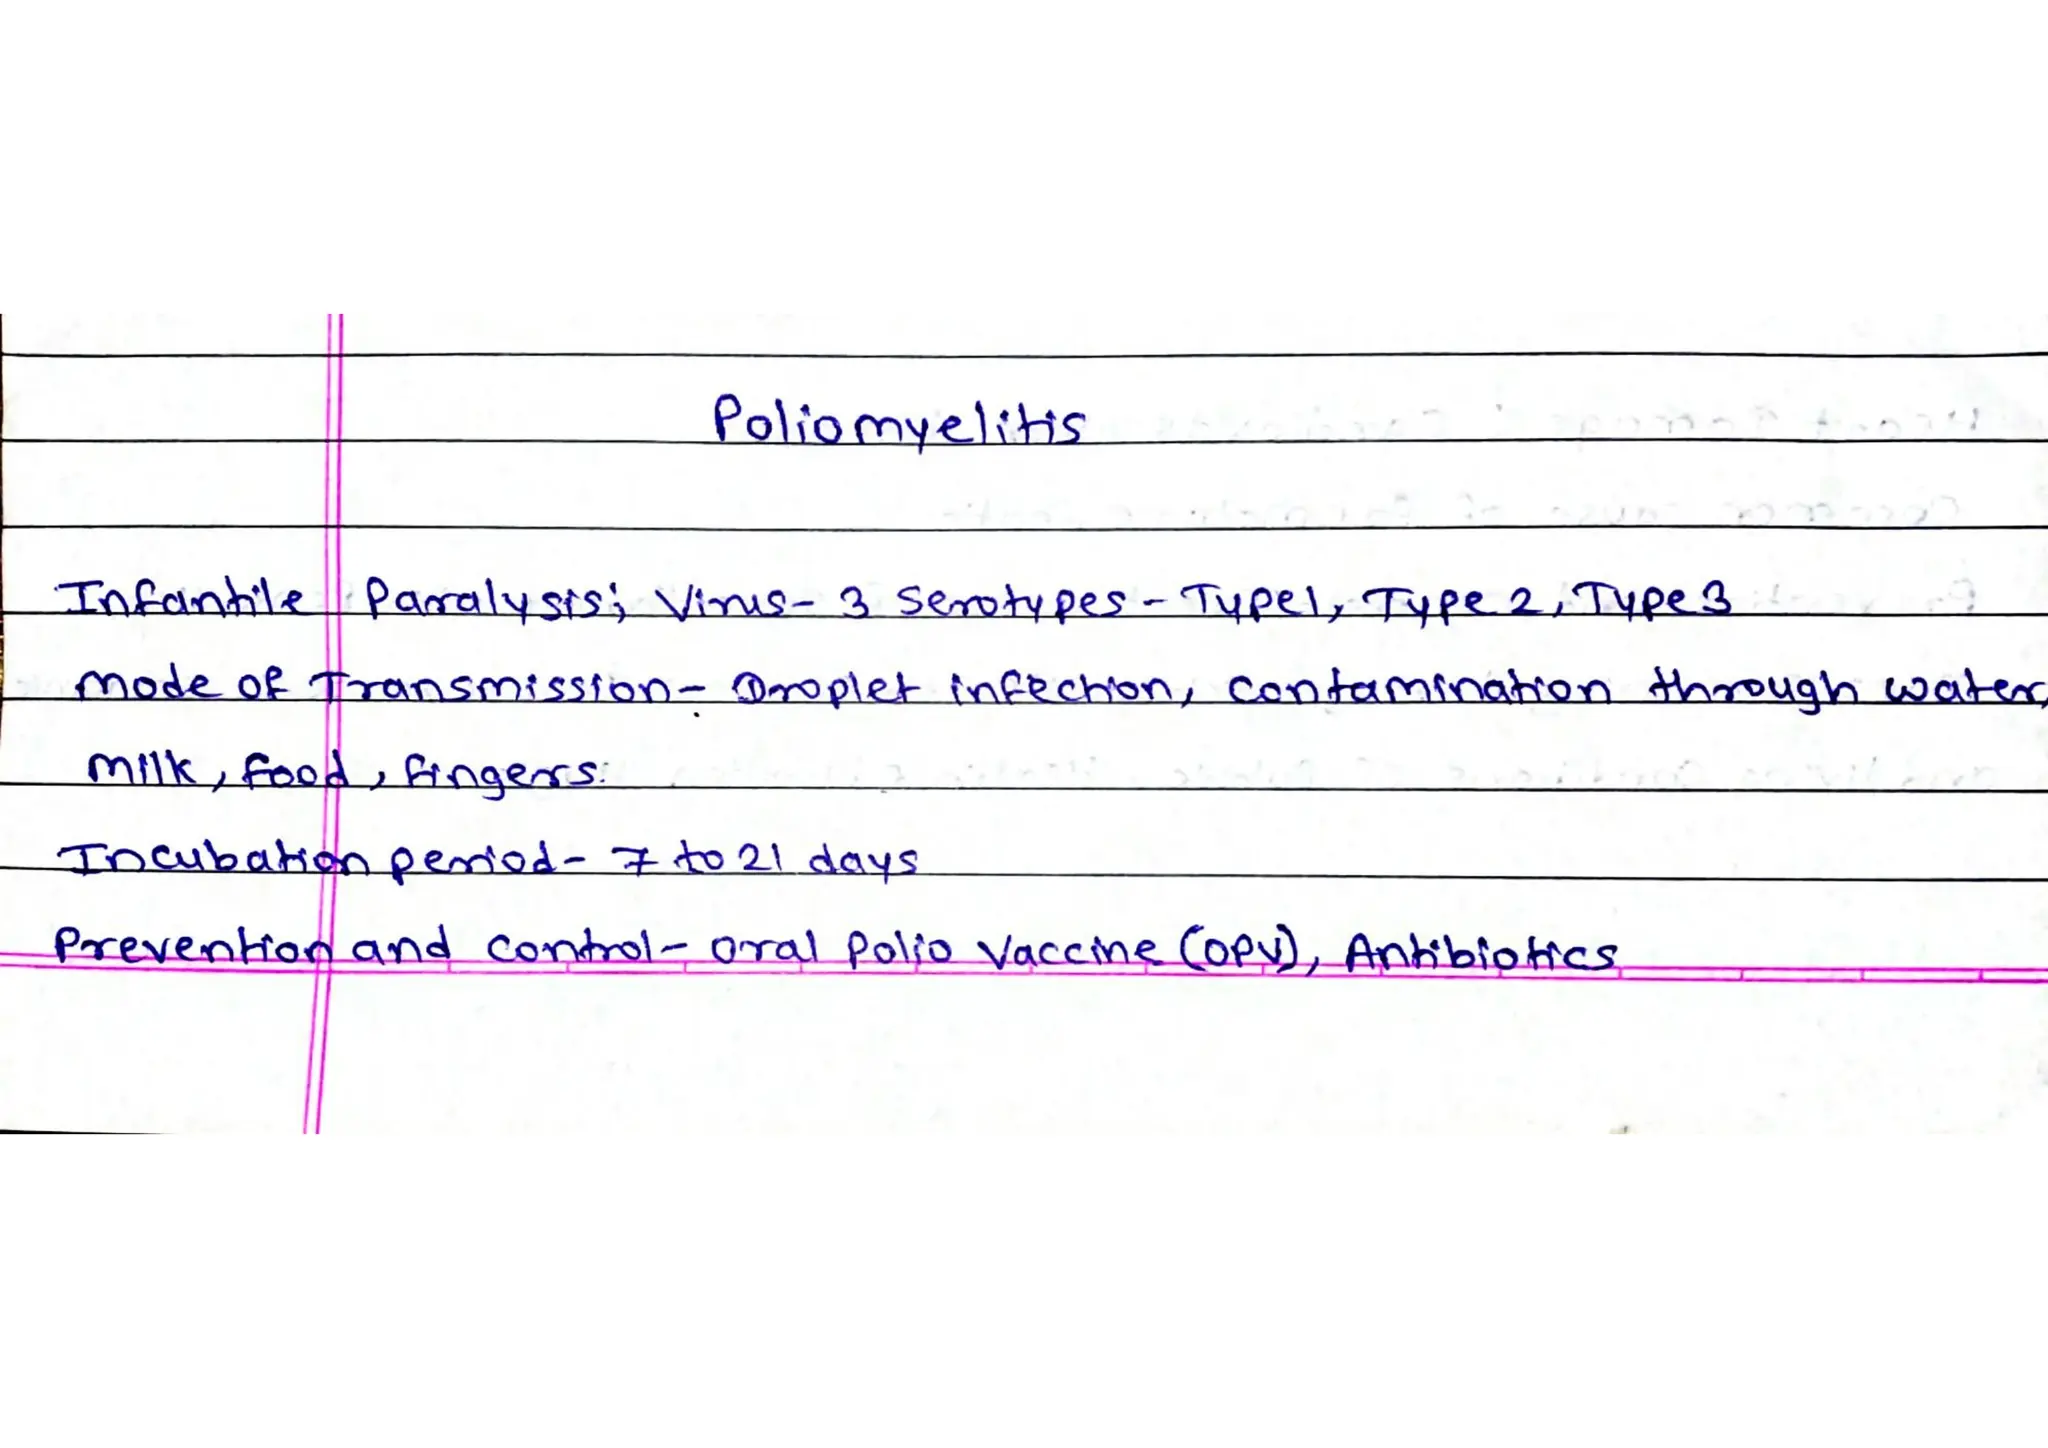 Poliomyelitis
Infantile Paralysis; Virus- 3 Serotypes - Type1, Type 2, Type 3
Mode of Transmission- Droplet infection, contamination through water,
milk, food, fingers.
Incubation period- 7 to 21 days
Prevention and control- Oral Polio Vaccine (OPV), Antibiotics